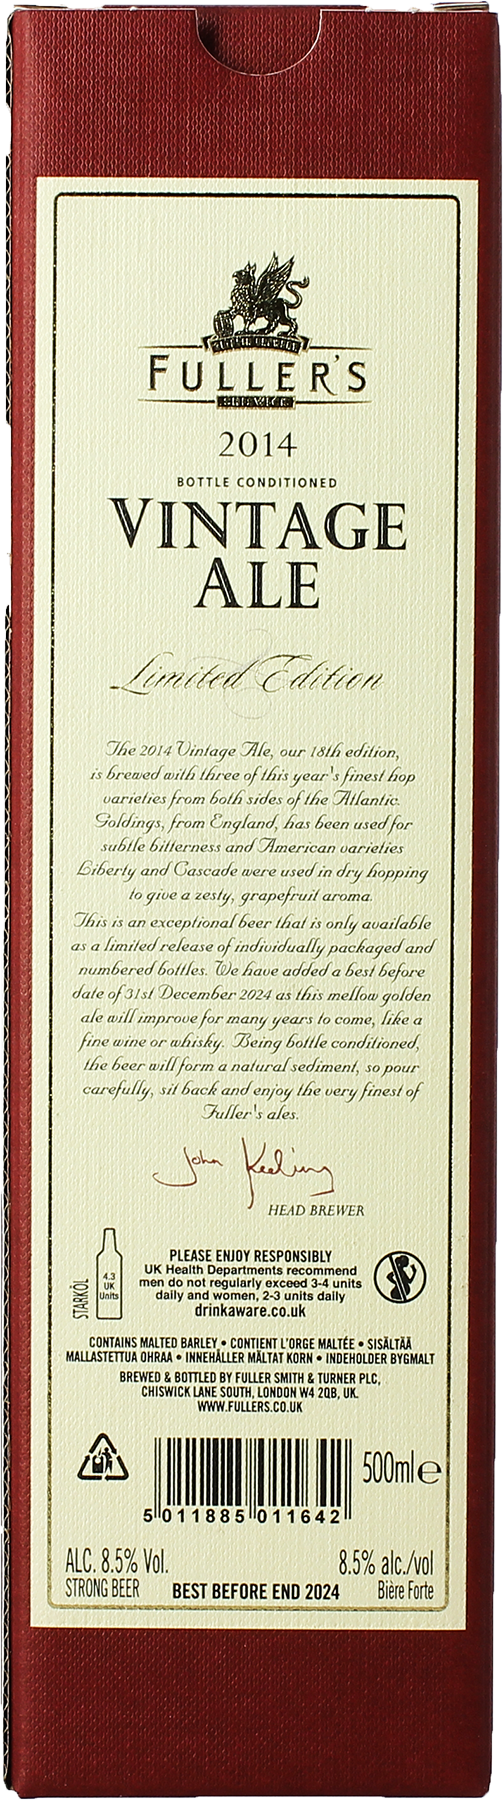 FULLER'S
BREWERY
2014
BOTTLE CONDITIONED
VINTAGE
ALE
Limited Edition
The 2014 Vintage Ale, our 18th edition,
is brewed with three of this year's finest hop
varieties from both sides of the Atlantic.
Goldings, from England, has been used for
subtle bitterness and American varieties
Liberty and Cascade were used in dry hopping
to give a zesty, grapefruit aroma.
This is an exceptional beer that is only available
as a limited release of individually packaged and
numbered bottles. We have added a best before
date of 31st December 2024 as this mellow golden
ale will improve for many years to come, like a
fine wine or whisky. Being bottle conditioned,
the beer will form a natural sediment, so pour
carefully, sit back and enjoy the very finest of
Fuller's ales.
John Keeling
HEAD BREWER
STARKÖL
4.3
UK
Units
PLEASE ENJOY RESPONSIBLY
UK Health Departments recommend
men do not regularly exceed 3-4 units
daily and women, 2-3 units daily
drinkaware.co.uk
CONTAINS MALTED BARLEY • CONTIENT L'ORGE MALTÉE • SISÄLTÄÄ
MALLASTETTUA OHRAA • INNEHÅLLER MÄLTAT KORN • INDEHOLDER BYGMALT
BREWED & BOTTLED BY FULLER SMITH & TURNER PLC,
CHISWICK LANE SOUTH, LONDON W4 2QB, UK.
WWW.FULLERS.CO.UK
500ml e
5 011885 011642
ALC. 8.5% Vol.
STRONG BEER
BEST BEFORE END 2024
8.5% alc./vol
Bière Forte